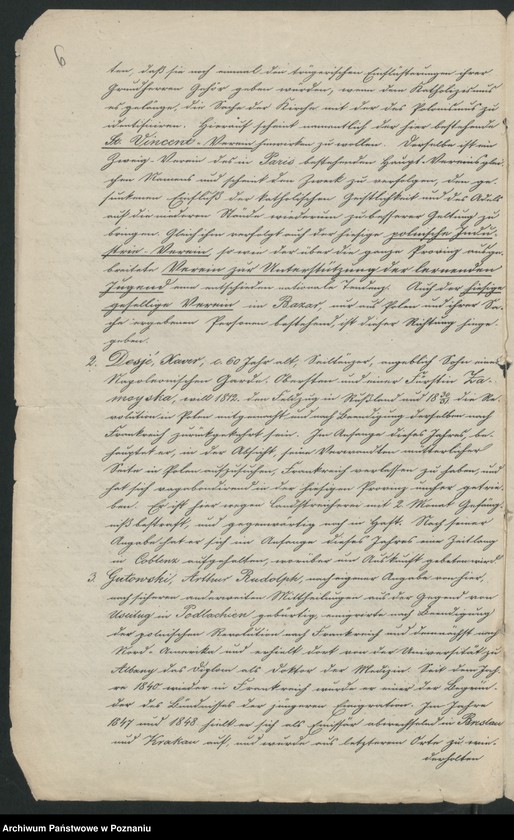 6
ten, daß sie noch einmal den trügerischen Einflüsterungen ihrer
Grundherren Gehör geben würden, wenn dem Katholizismus
es gelänge, die Sache der Kirche mit der des Polonismus zu
identifiziren. Hierauf scheint namentlich der hier bestehende
St. Vincent-Verein hinwirken zu wollen. Derselbe ist ein
Zweig-Verein des in Paris bestehenden Haupt-Vereins glei-
chen Namens und scheint den Zweck zu verfolgen, den ge-
sunkenen Einfluß der katholischen Geistlichkeit und des Adels
auf die niederen Stände wiederum zu besserer Geltung zu
bringen. Gleiches verfolgt auch der hiesige polnische Indu-
strie-Verein, so wie der über die ganze Provinz ausge-
breitete Verein zur Unterstützung der lernenden
Jugend eine entschieden nationale Tendenz. Auch der hiesige
gesellige Verein im Bazar, nur aus Polen und ihrer Sa-
che ergebenen Personen bestehend, ist dieser Richtung hinge-
geben.
2. Desjé, Xaver, c. 60 Jahr alt, Seiltänzer, angeblich Sohn eines
Napoleonischen Garde-Obersten und einer Fürstin Za-
moyska, will 1812 den Feldzug in Rußland und 18 30/31 die Re-
volution in Polen mitgemacht und nach Beendigung derselben nach
Frankreich zurückgekehrt sein. Im Anfange dieses Jahres, be-
hauptet er, in der Absicht, seine Verwandten mütterlicher
Seite in Polen aufzusuchen, Frankreich verlassen zu haben, und
hat sich vagabondirend in der hiesigen Provinz umher getrie-
ben. Er ist hier wegen Landstreicherei mit 2 Monat Gefäng-
niß bestraft, und gegenwärtig noch in Haft. Nach seiner
Angabe hat er sich im Anfange dieses Jahres eine Zeitlang
in Coblenz aufgehalten, worüber um Auskunft gebeten wird.
3. Gutowski, Arthur Rudolph, nach eigener Angabe von hier,
nach sicheren anderweiten Mittheilungen aus der Gegend von
in Podlachien gebürtig, emigrirte nach Beendigung
der polnischen Revolution nach Frankreich und demnächst nach
Nord-Amerika und erhielt dort von der Universität zu
Albany das Diplom als Doktor der Medizin. Seit dem Jah-
re 1840 wieder in Frankreich wurde er einer der Begrün-
der des Bündnisses der jüngeren Emigration. Im Jahre
1847 und 1848 hielt er sich als Emissär abwechselnd in Breslau
und Krakau auf, und wurde aus letzterem Orte zu wie-
derholten
Archiwum Państwowe w Poznaniu